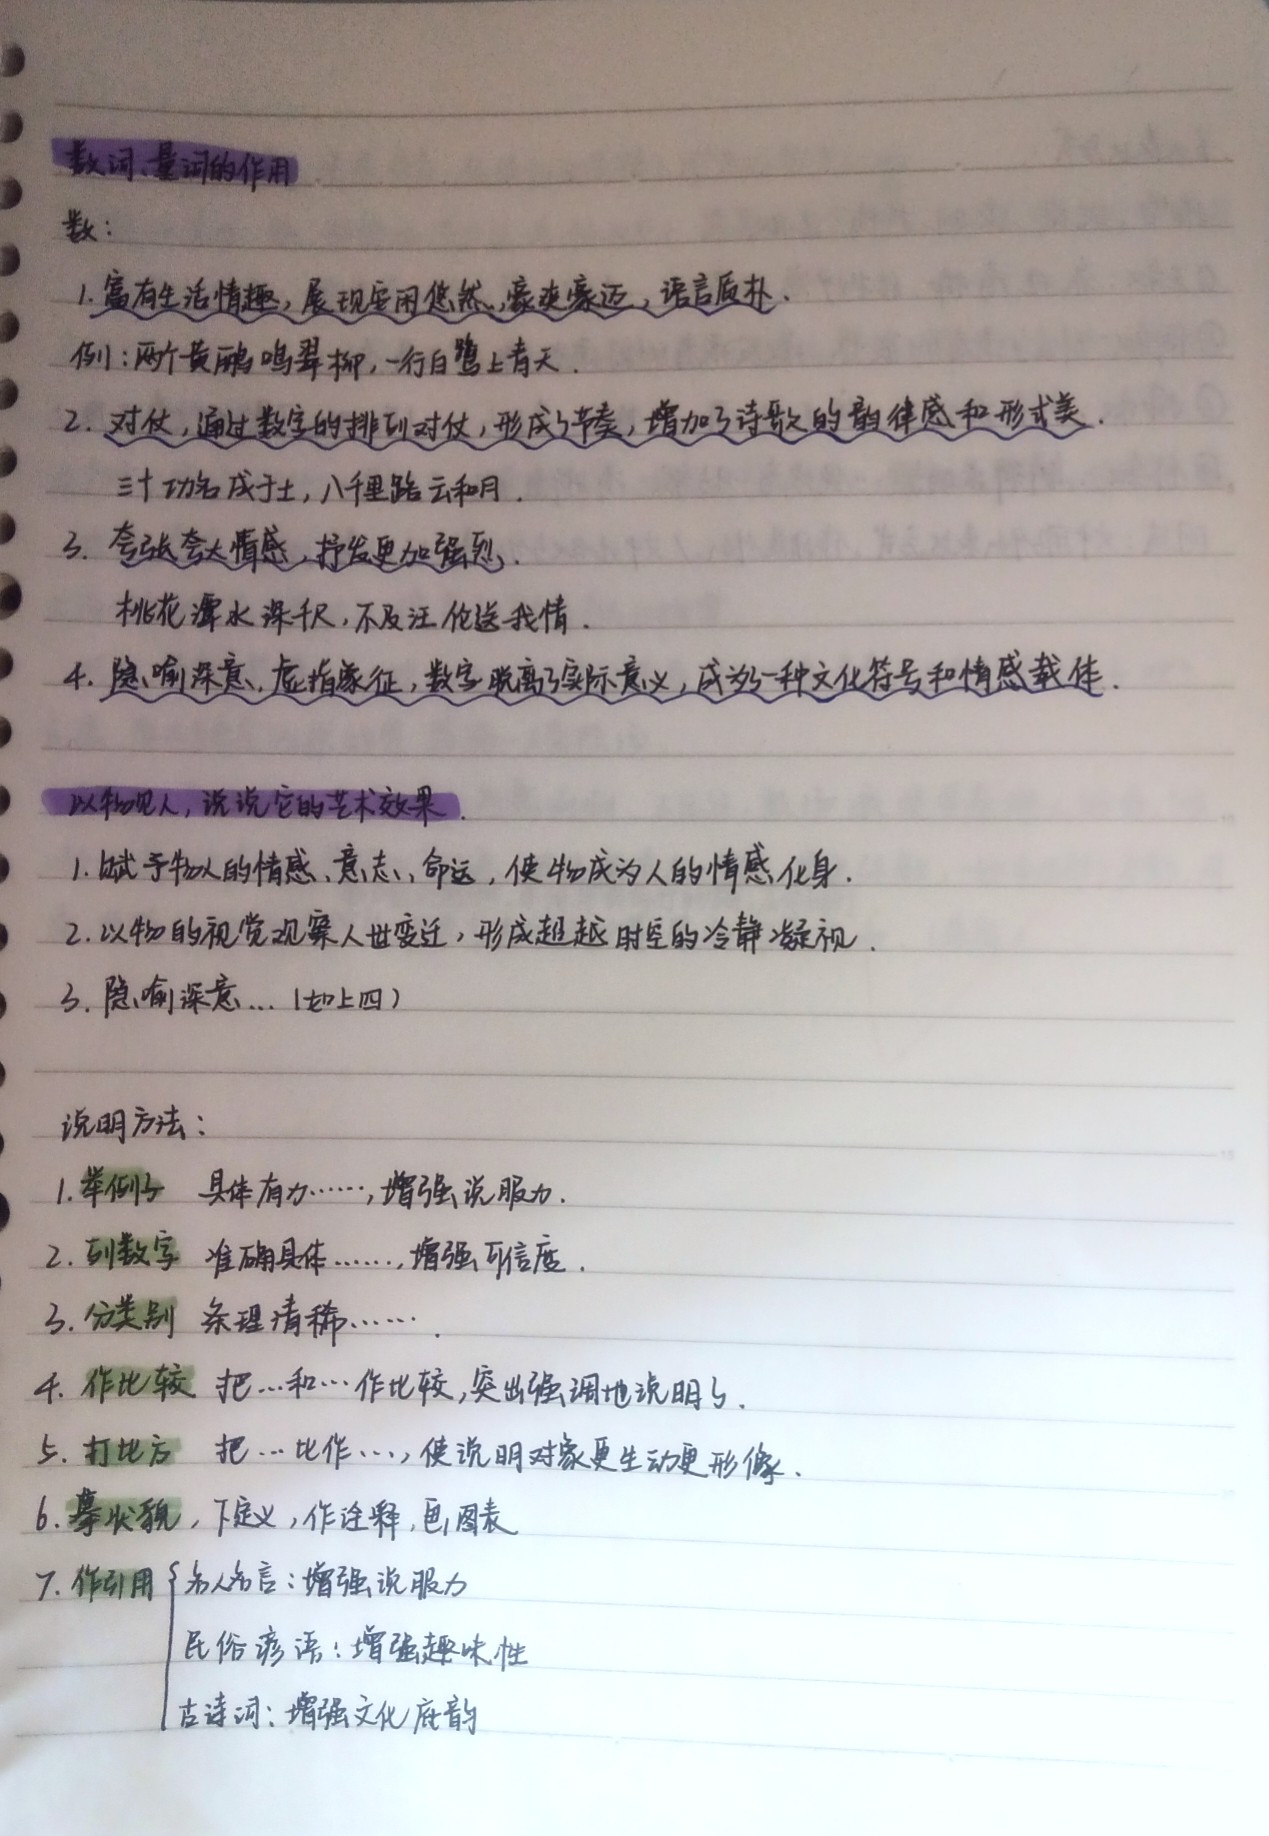 数词、量词的作用
数:
1. 富有生活情趣,展现安闲悠然,豪爽豪迈,语言质朴.
例:两个黄鹂鸣翠柳,一行白鹭上青天.
2. 对仗,通过数字的排列对仗,形成了节奏,增加了诗歌的韵律感和形式美.
三十功名成于土,八千里路云和月.
3. 夸张夸大情感,抒发更加强烈.
桃花潭水深千尺,不及汪伦送我情.
4. 隐喻深意,虚指象征,数字脱离了实际意义,成为了一种文化符号和情感载体.
以物见人,说说它的艺术效果.
1. 赋予物人的情感、意志、命运,使物成为人的情感化身.
2. 以物的视觉观察人世变迁,形成超越时空的冷静凝视.
3. 隐喻深意…(如上四)
说明方法:
1. 举例子 具体有力……,增强说服力.
2. 列数字 准确具体……,增强可信度.
3. 分类别 条理清稀…….
4. 作比较 把…和…作比较,突出强调地说明了.
5. 打比方 把…比作…,使说明对象更生动更形像.
6. 摹状貌,下定义,作诠释,画图表
7. 作引用{名人名言:增强说服力
民俗谚语:增强趣味性
古诗词:增强文化底韵